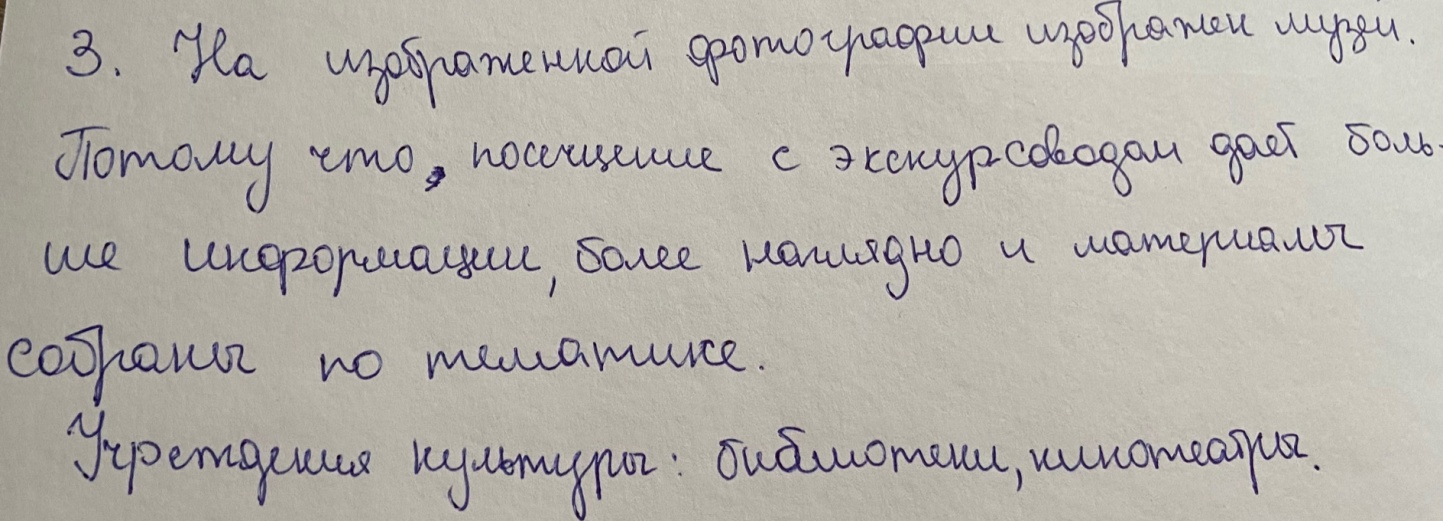 3. На изображенной фотографии изображен музей.
Потому что, посещение с экскурсоводом даёт боль-
ше информации, более наглядно и материалы
собраны по тематике.
Учреждения культуры: библиотеки, кинотеатры.